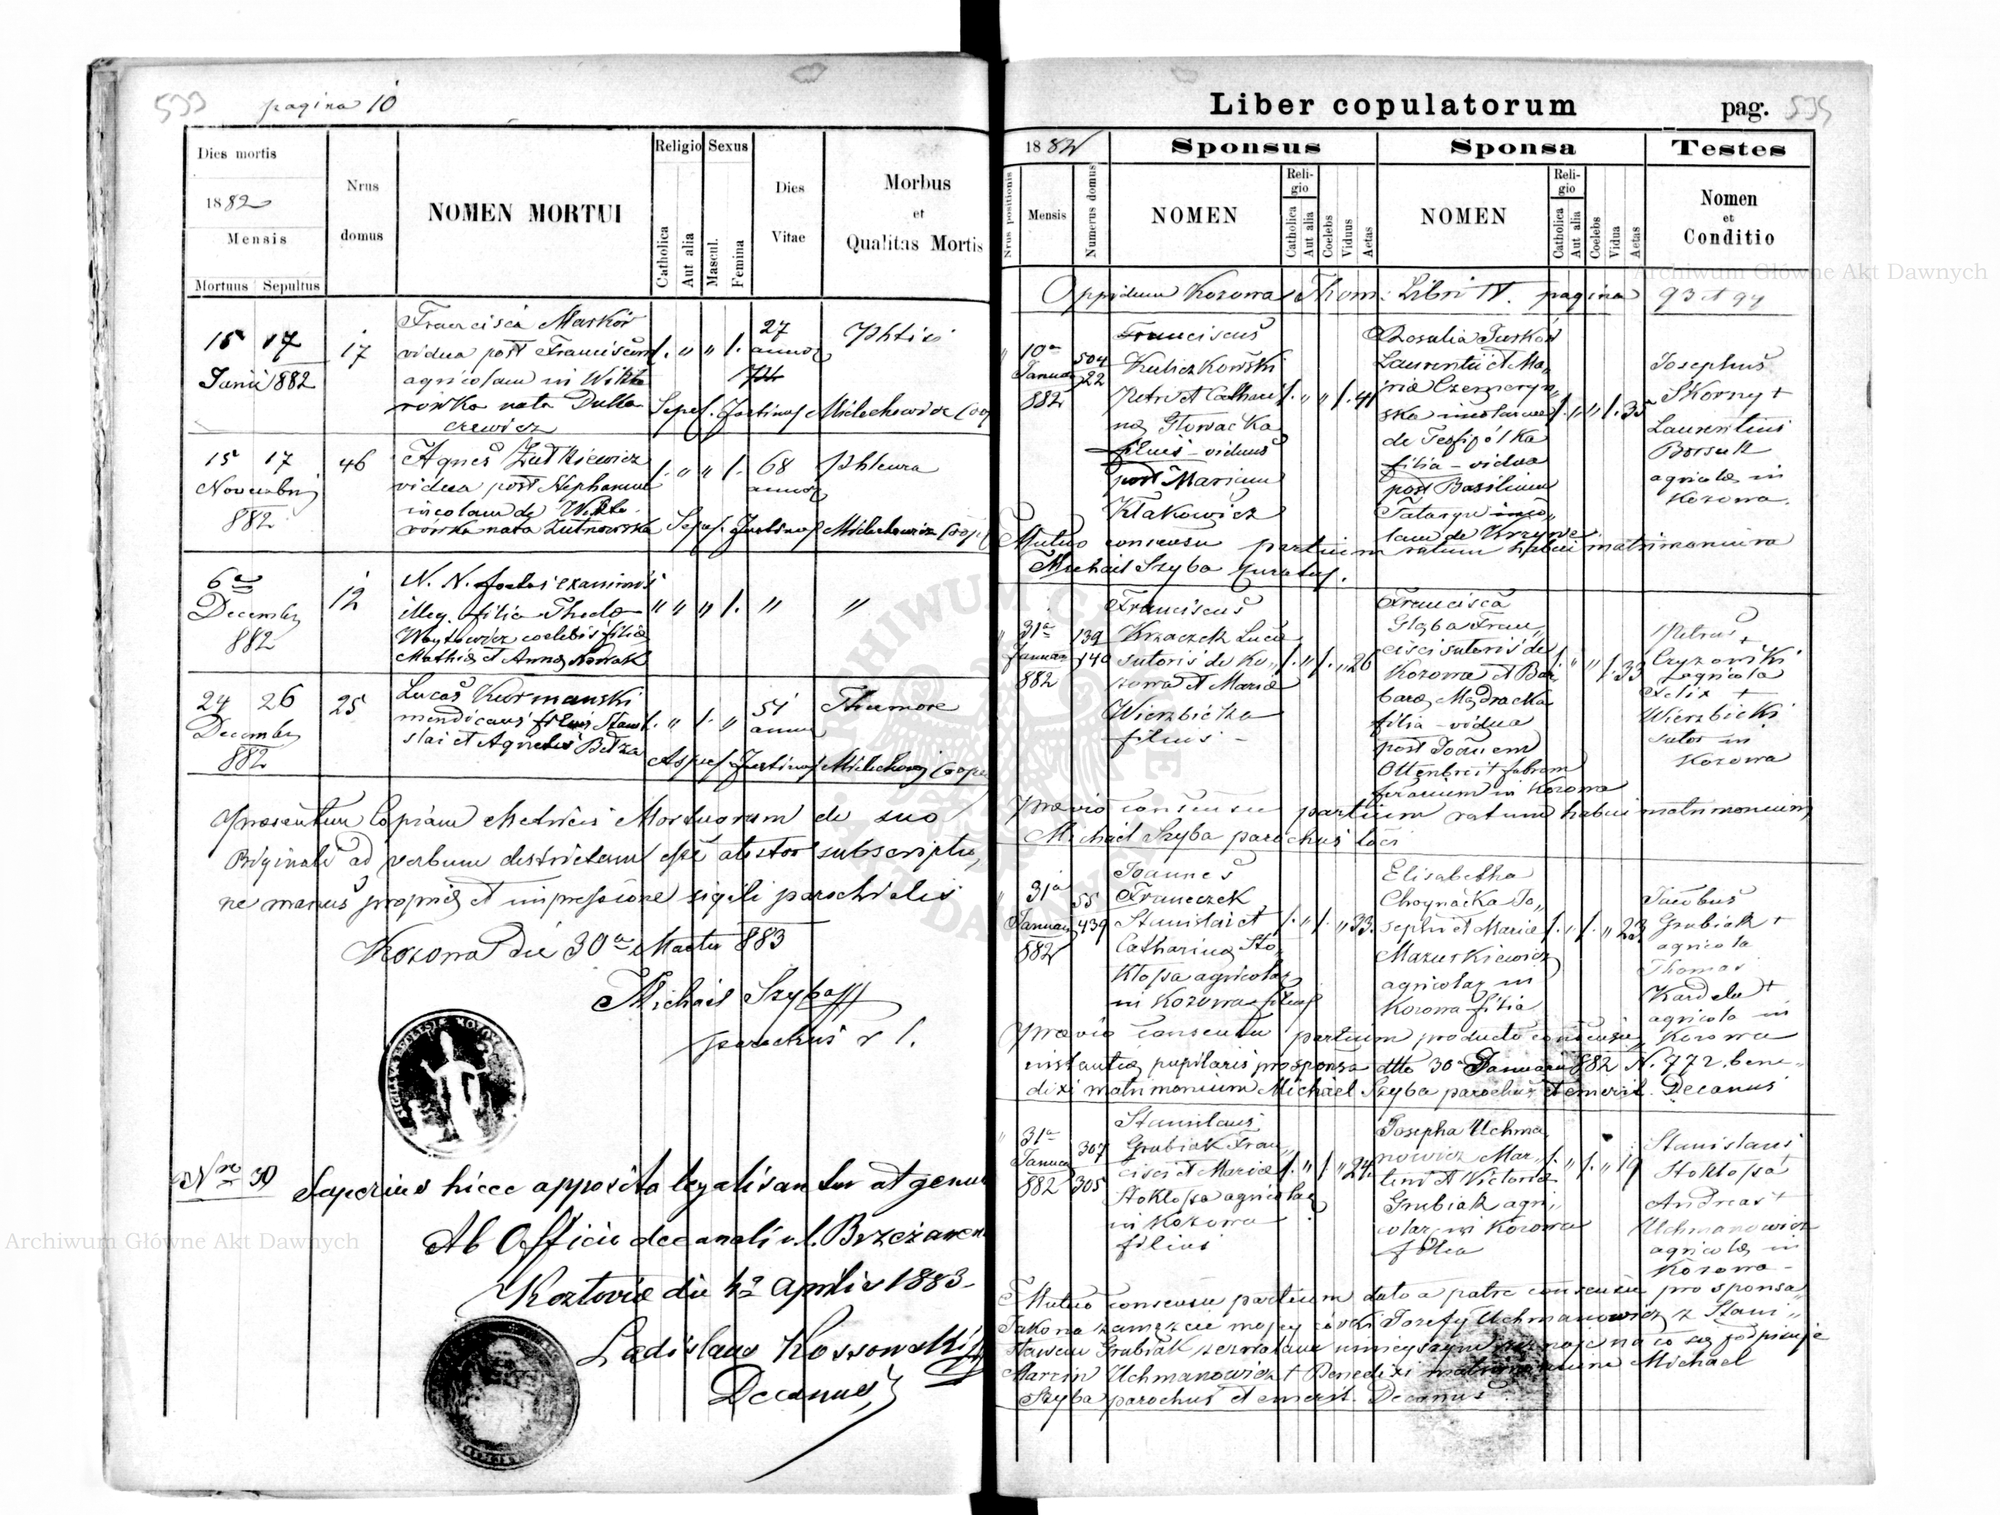 533 pagina 10
Dies mortis
1882
Mensis
Mortuus Sepultus
Nrus
domus
NOMEN MORTUI
Religio Sexus
Catholica
Aut alia
Mascul.
Femina
Dies
Vitae
Morbus
et
Qualitas Mortis
15 17
Junii 882
17
Francisca Markow
vidua post Franciscum
agricolam in Wikto
rówka nata Dutka
czewicz
1. " " 1.
27
annor
Phtisis
15 17
Novembris
882
46
Agnes Żutkiewicz
vidua post Stephanum
incolam de Wikto
rówka nata Zutnowska
1. " " 1.
68
annor
Phleura
6a
Decembr
882
12
N. N. foetus exanimis
illeg. filia Theclae
Woytowicz coelebis filiae
Mathiae et Annae Nowak
" " " 1. " "
24 26
Decembr
882
25
Lucas Kurmanski
mendicans filius Stanis
slai et Agnetis Betza
1. " 1. "
51
annor
Praesentem Copiam Metricis Mortuorum de suo
Originali ad verbum destrictam esse attestor subscriptio
ne manus propriae et impressione sigili parochialis
Kozowa die 30a Martii 883
Michael Szyba
parochus r l.
Nro 30 Superius hicce apposita legalisantur ut genui
Ab Officio decanali r. l. Brzeżanen
Koztoviae die 4a Aprilis 1883.
Ladislaus Kossowski
Decanus
Liber copulatorum pag. 535
1882
Sponsus
Sponsa
Testes
Nrus positionis
Mensis
Numerus domus
NOMEN
Religio
Catholica
Aut alia
Coelebs
Viduus
Aetas
NOMEN
Religio
Catholica
Aut alia
Coelebs
Vidua
Aetas
Nomen
et
Conditio
Oppidum Kozowa Thom: Libri IV. pagina 93 et 94
10a
Januar
882
504
22
Franciscus
Kuliczkowski
Petri et Cathari
nae Głowacka
filius - viduus
post Mariam
Kłakowicz
1. " " 1. 41
Rosalia Turków
Laurentii et Ma
riae Czemeryn
ska incolarum
de Teofipólka
filia - vidua
post Basilium
Tataryn inco
lam de Krzywe
1. " " 1. 35
Josephus
Skorny +
Laurentius
Borsuk
agricolae in
Kozowa
Mutuo consensu partium ratum habui matrimonium
Michael Szyba Curatus.
31a
Januar
882
139
140
Franciscus
Krzaczek Lucae
sutoris de Ko
zowa et Mariae
Wierzbicka
filius -
1. " 1. " 26
Francisca
Głąba Fran
cisci sutoris de
Kozowa et Bar
barae Mądracka
filia - vidua
post Joannem
Ottenbreit fabrum
ferarium in Kozowa
1. " " 1. 33
Petrus +
Czyzowski
agricola
Felix +
Wierzbicki
sutor in
Kozowa
Praevio consensu partium ratum habui matrimonium
Michael Szyba parochus loci
31a
Januar
882
55
439
Joannes
Franczek
Stanislai et
Catharinae Sto
kłosa agricolar
in Kozowa filius
1. " 1. " 33.
Elisabetha
Choynacka Jo
sephi et Mariae
Mazurkiewicz
agricolar in
Kozowa filia
1. " 1. " 23
Jacobus
Grubiak +
agricola
Thomas
Kardela +
agricola in
Kozowa
Praevio consensu partium producto consensu
instantiae pupilaris pro sponsa dtto 30a Januarii 882 N. 772 bene
dixi matrimonium Michael Szyba parochus et emerit. Decanus
31a
Januar
882
307
305
Stanislaus
Grubiak Fran
cisci et Mariae
Stokłosa agricolar
in Kozowa
filius
1. " 1. " 24.
Josepha Uchma
nowicz Mar
tini et Victoriae
Grubiak agri
colar in Kozowa
filia
1. " 1. " 19
Stanislaus
Stokłosa
Andreas +
Uchmanowicz
agricolae in
Kozowa -
Mutuo consensu partium dato a patre consensu pro sponsa
Jako na zamęzcie mojey córki Jozefy Uchmanowicz z Stani
sławem Grubiak zezwalam niniejszym zeznaję na co się podpisuje
Marcin Uchmanowicz + Benedixi matrimonium Michael
Szyba parochus et emerit. Decanus
Archiwum Główne Akt Dawnych
Archiwum Główne Akt Dawnych
ARCHIWUM GŁÓWNE AKT DAWNYCH